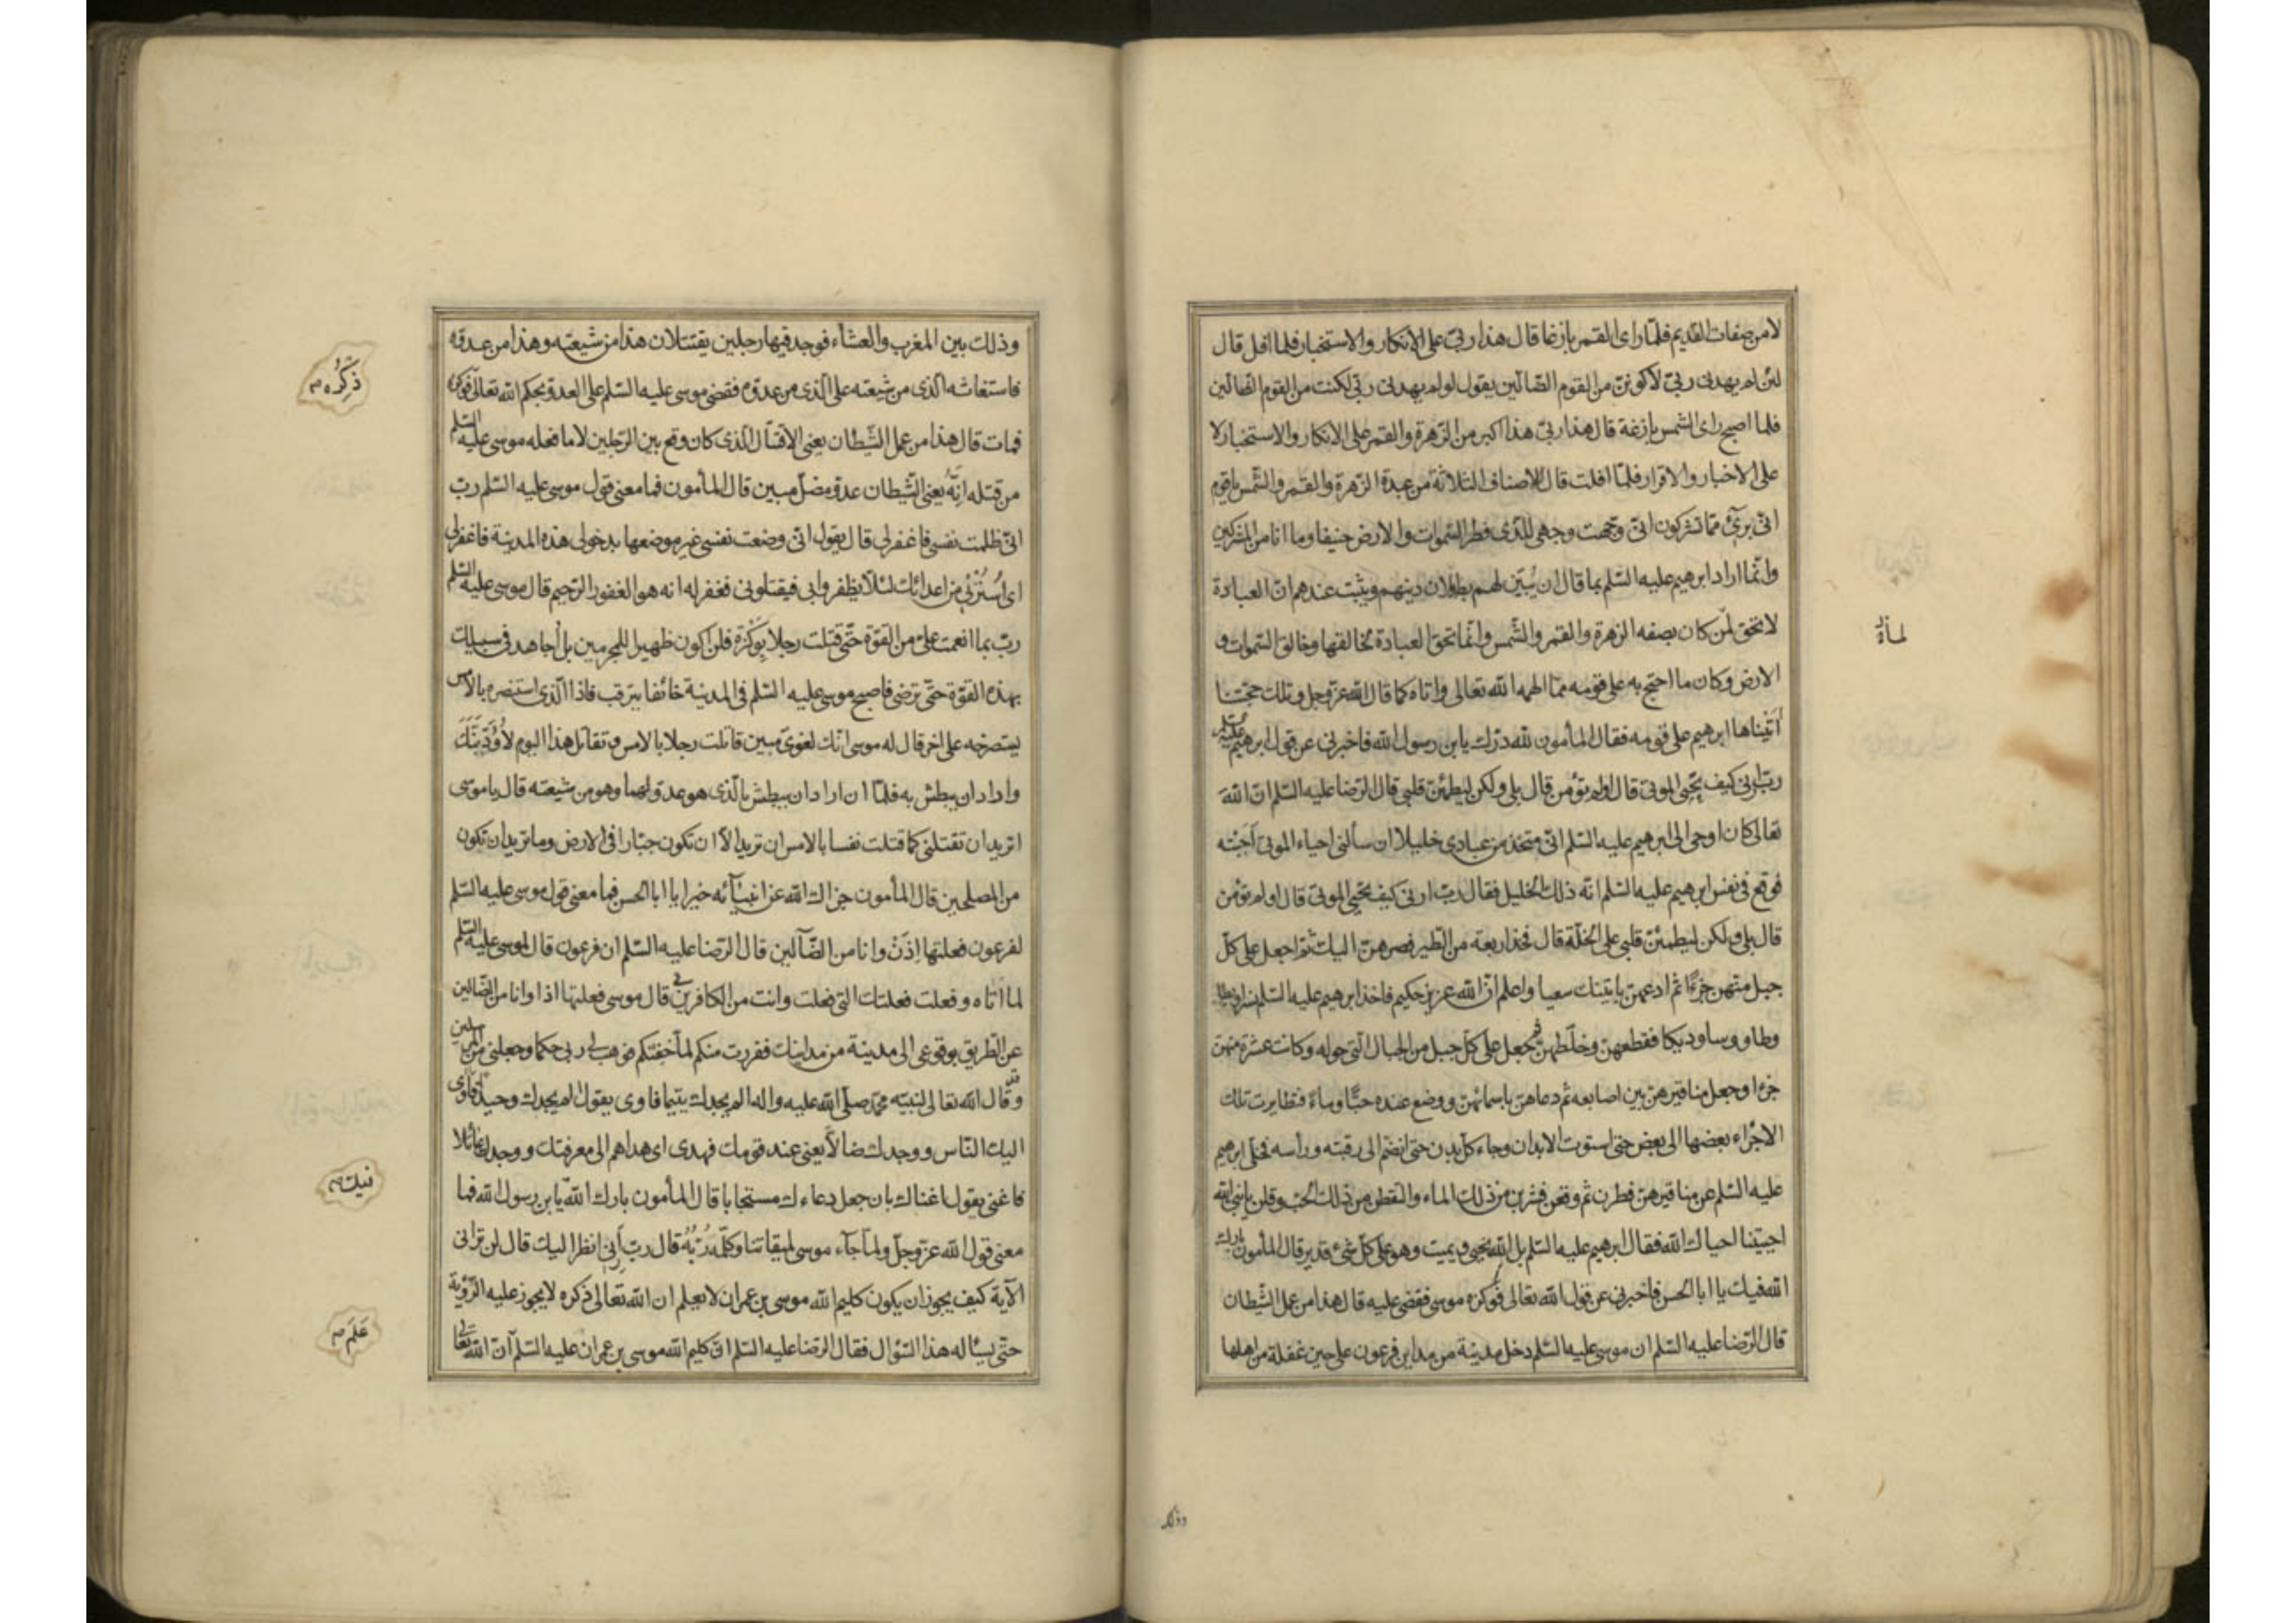 لا من صفات القديم فلمّا رای القمر بازغا قال هذا ربّی علی الانکار والاستخبار فلما افل قال
لئن لم یهدنی ربّی لاکوننّ من القوم الضّالّین یقول لو لم یهدنی ربّی لکنت من القوم الضالّین
فلما اصبح رای الشمس بازغة قال هذا ربّی هذا اکبر من الزهرة والقمر علی الانکار والاستخبار لا
علی الاخبار والاقرار فلمّا افلت قال للاصناف الثلاثة من عبدة الزهرة والقمر والشّمس یا قوم
انّی بریٔ ممّا تشرکون انّی وجّهت وجهی للّذی فطر السّموات والارض حنیفا وما انا من المشرکین
وانّما اراد ابرهیم علیه السّلم بما قال ان یُبیّن لهم بطلان دینهم ویثبت عندهم انّ العبادة
لا تحقّ لمن کان بصفه الزهرة والقمر والشّمس وانّما تحقّ العبادة لخالقها وخالق السّموات و
الارض وکان ما احتجّ به علی قومه ممّا الهمه الله تعالی واتاه کما قال الله عزّوجل وتلك حجّتنا
اٰتَیْناها ابرهیم علی قومه فقال المأمون لله درّك یا بن رسول الله فاخبرنی عن قول ابرهیم علیه السّلم
ربّ ارنی کیف تُحیی الموتی قال اولم تؤمن قال بلی ولکن لیطمئنّ قلبی قال الرّضا علیه السّلم انّ اللهَ
تعالی کان اوحی الی ابرهیم علیه السّلم انّی متّخذ من عبادی خلیلا ان سألنی احیاء الموتی اَجَبْته
فوقع فی نفس ابرهیم علیه السّلم انّه ذلك الخلیل فقال ربّ ارنی کیف تحیی الموتی قال اولم تؤمن
قال بلی ولکن لیطمئنّ قلبی علی الخلّة قال فخذ اربعة من الطّیر فصرهنّ الیك ثمّ اجعل علی کلّ
جبل منهنّ جزءًا ثمّ ادعهنّ یأتینك سعیا واعلم انّ الله عزیز حکیم فاخذ ابرهیم علیه السّلم نسرا وبطا
وطاووسا ودیکا فقطعهنّ وخلّطهنّ ثم جعل علی کلّ جبل من الجبال الّتی حوله وکانت عشرة منهنّ
جزءا وجعل مناقیرهنّ بین اصابعه ثم دعاهنّ باسمائهنّ ووضع عنده حبًّا وماءً فتطایرت تلك
الاجزاء بعضها الی بعض حتی استوت الابدان وجاء کلّ بدن حتی انضمّ الی رقبته ورأسه فخلّی ابرهیم
علیه السّلم عن مناقیرهنّ فطرن ثم وقعن فشربن من ذلك الماء والتقطن من ذلك الحبّ وقلن یا نبی الله
احییتنا احیاك الله فقال ابرهیم علیه السّلم بل الله یحیی ویمیت وهو علی کلّ شیٔ قدیر قال المأمون بارك
الله فیك یا ابا الحسن فاخبرنی عن قول الله تعالی فوکزه موسی فقضی علیه قال هذا من عمل الشّیطان
قال الرّضا علیه السّلم ان موسی علیه السّلم دخل مدینة من مداین فرعون علی حین غفلة من اهلها
وذلك
وذلك بین المغرب والعشاء فوجد فیها رجلین یقتتلان هذا من شیعته وهذا من عدوّه
فاستغاثه الّذی من شیعته علی الّذی من عدوّه فقضی موسی علیه السّلم علی العدوّ بحکم الله تعالی فوکزه
فمات قال هذا من عمل الشّیطان یعنی الاقتتال الّذی کان وقع بین الرّجلین لا ما فعله موسی علیه السّلم
من قتله اِنّهُ یعنی الشّیطان عدوّ مضلّ مبین قال المأمون فما معنی قول موسی علیه السّلم ربّ
انّی ظلمت نفسی فاغفر لی قال یقول انّی وضعت نفسی غیر موضعها بدخولی هذه المدینة فاغفر لی
ای اُسْتُرْنی من اعدائك لئلّا یظفروا بی فیقتلونی فغفر له انه هو الغفور الرّحیم قال موسی علیه السّلم
ربّ بما انعمت علیّ من القوّة حتّی قتلت رجلا بِوَکْزة فلن اکون ظهیرا للمجرمین بل اُجاهد فی سبیلك
بهذه القوّة حتّی ترضی فاصبح موسی علیه السّلم فی المدینة خائفا یترقب فاذا الّذی استنصره بالامس
یستصرخه علی اخر قال له موسی انّك لغویّ مبین قاتلت رجلا بالامس وتقاتل هذا الیوم لاُؤَدّبَنَّكَ
واراد ان یبطش به فلمّا ان اراد ان یبطش بالّذی هو عدوّ لهما وهو من شیعته قال یا موسی
اترید ان تقتلنی کما قتلت نفسا بالامس ان ترید الّا ان تکون جبّارا فی الارض وما ترید ان تکون
من المصلحین قال المأمون جزاك الله عن انبیآئه خیرا یا ابا الحسن فما معنی قول موسی علیه السّلم
لفرعون فعلتها اِذَنْ وانا من الضّآلین قال الرّضا علیه السّلم ان فرعون قال لموسی علیه السّلم
لما اتاه وفعلت فعلتك التی فعلت وانت من الکافرین بی قال موسی فعلتها اذا وانا من الضّالین
عن الطّریق بوقوعی الی مدینة من مداینك ففررت منکم لمّا خفتکم فوهب لی ربی حکما وجعلنی من المرسلین
وقد قال الله تعالی لنبیّه محمّد صلّی الله علیه واله الم یجدك یتیما فاوی یقول الم یجدك وحیدًا فاوی
الیك النّاس ووجدك ضالّا یعنی عند قومك فهدی ای هداهم الی معرفتك ووجدك عائلا
فاغنی یقول اغناك بان جعل دعاءك مستجابا قال المأمون بارك الله یا بن رسول الله فما
معنی قول الله عزّوجلّ ولمّا جآء موسی لمیقاتنا وکلّمه رَبُّهُ قال ربّ اَرِنی انظر الیك قال لن ترانی
الآیة کیف یجوز ان یکون کلیم الله موسی بن عمران لا یعلم ان الله تعالی ذکره لا یجوز علیه الرّؤیة
حتّی یسئاله هذا السّؤال فقال الرّضا علیه السّلم انّ کلیم الله موسی بن عمران علیه السّلم انّ الله تعالی
ذِکْرُه م
فیك م
عَلِمَ م